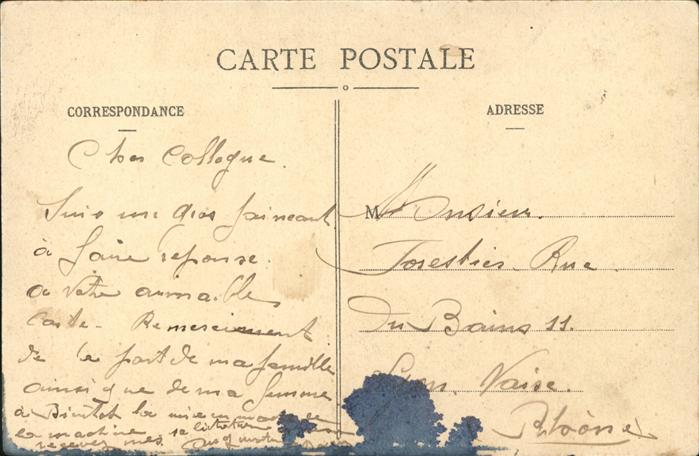 CARTE POSTALE
CORRESPONDANCE
ADRESSE
Cher Collegue.
Suis un gros faineant
à faire reponse.
a votre aimable
Carte. Remerciement
de la part de ma famille
ainsi que de ma femme
a Bientot la mise en
la machine
recevez mes
M Monsieur.
Forestier. Rue
Du Bains 11.
Lyon. Vaise.
Rhône